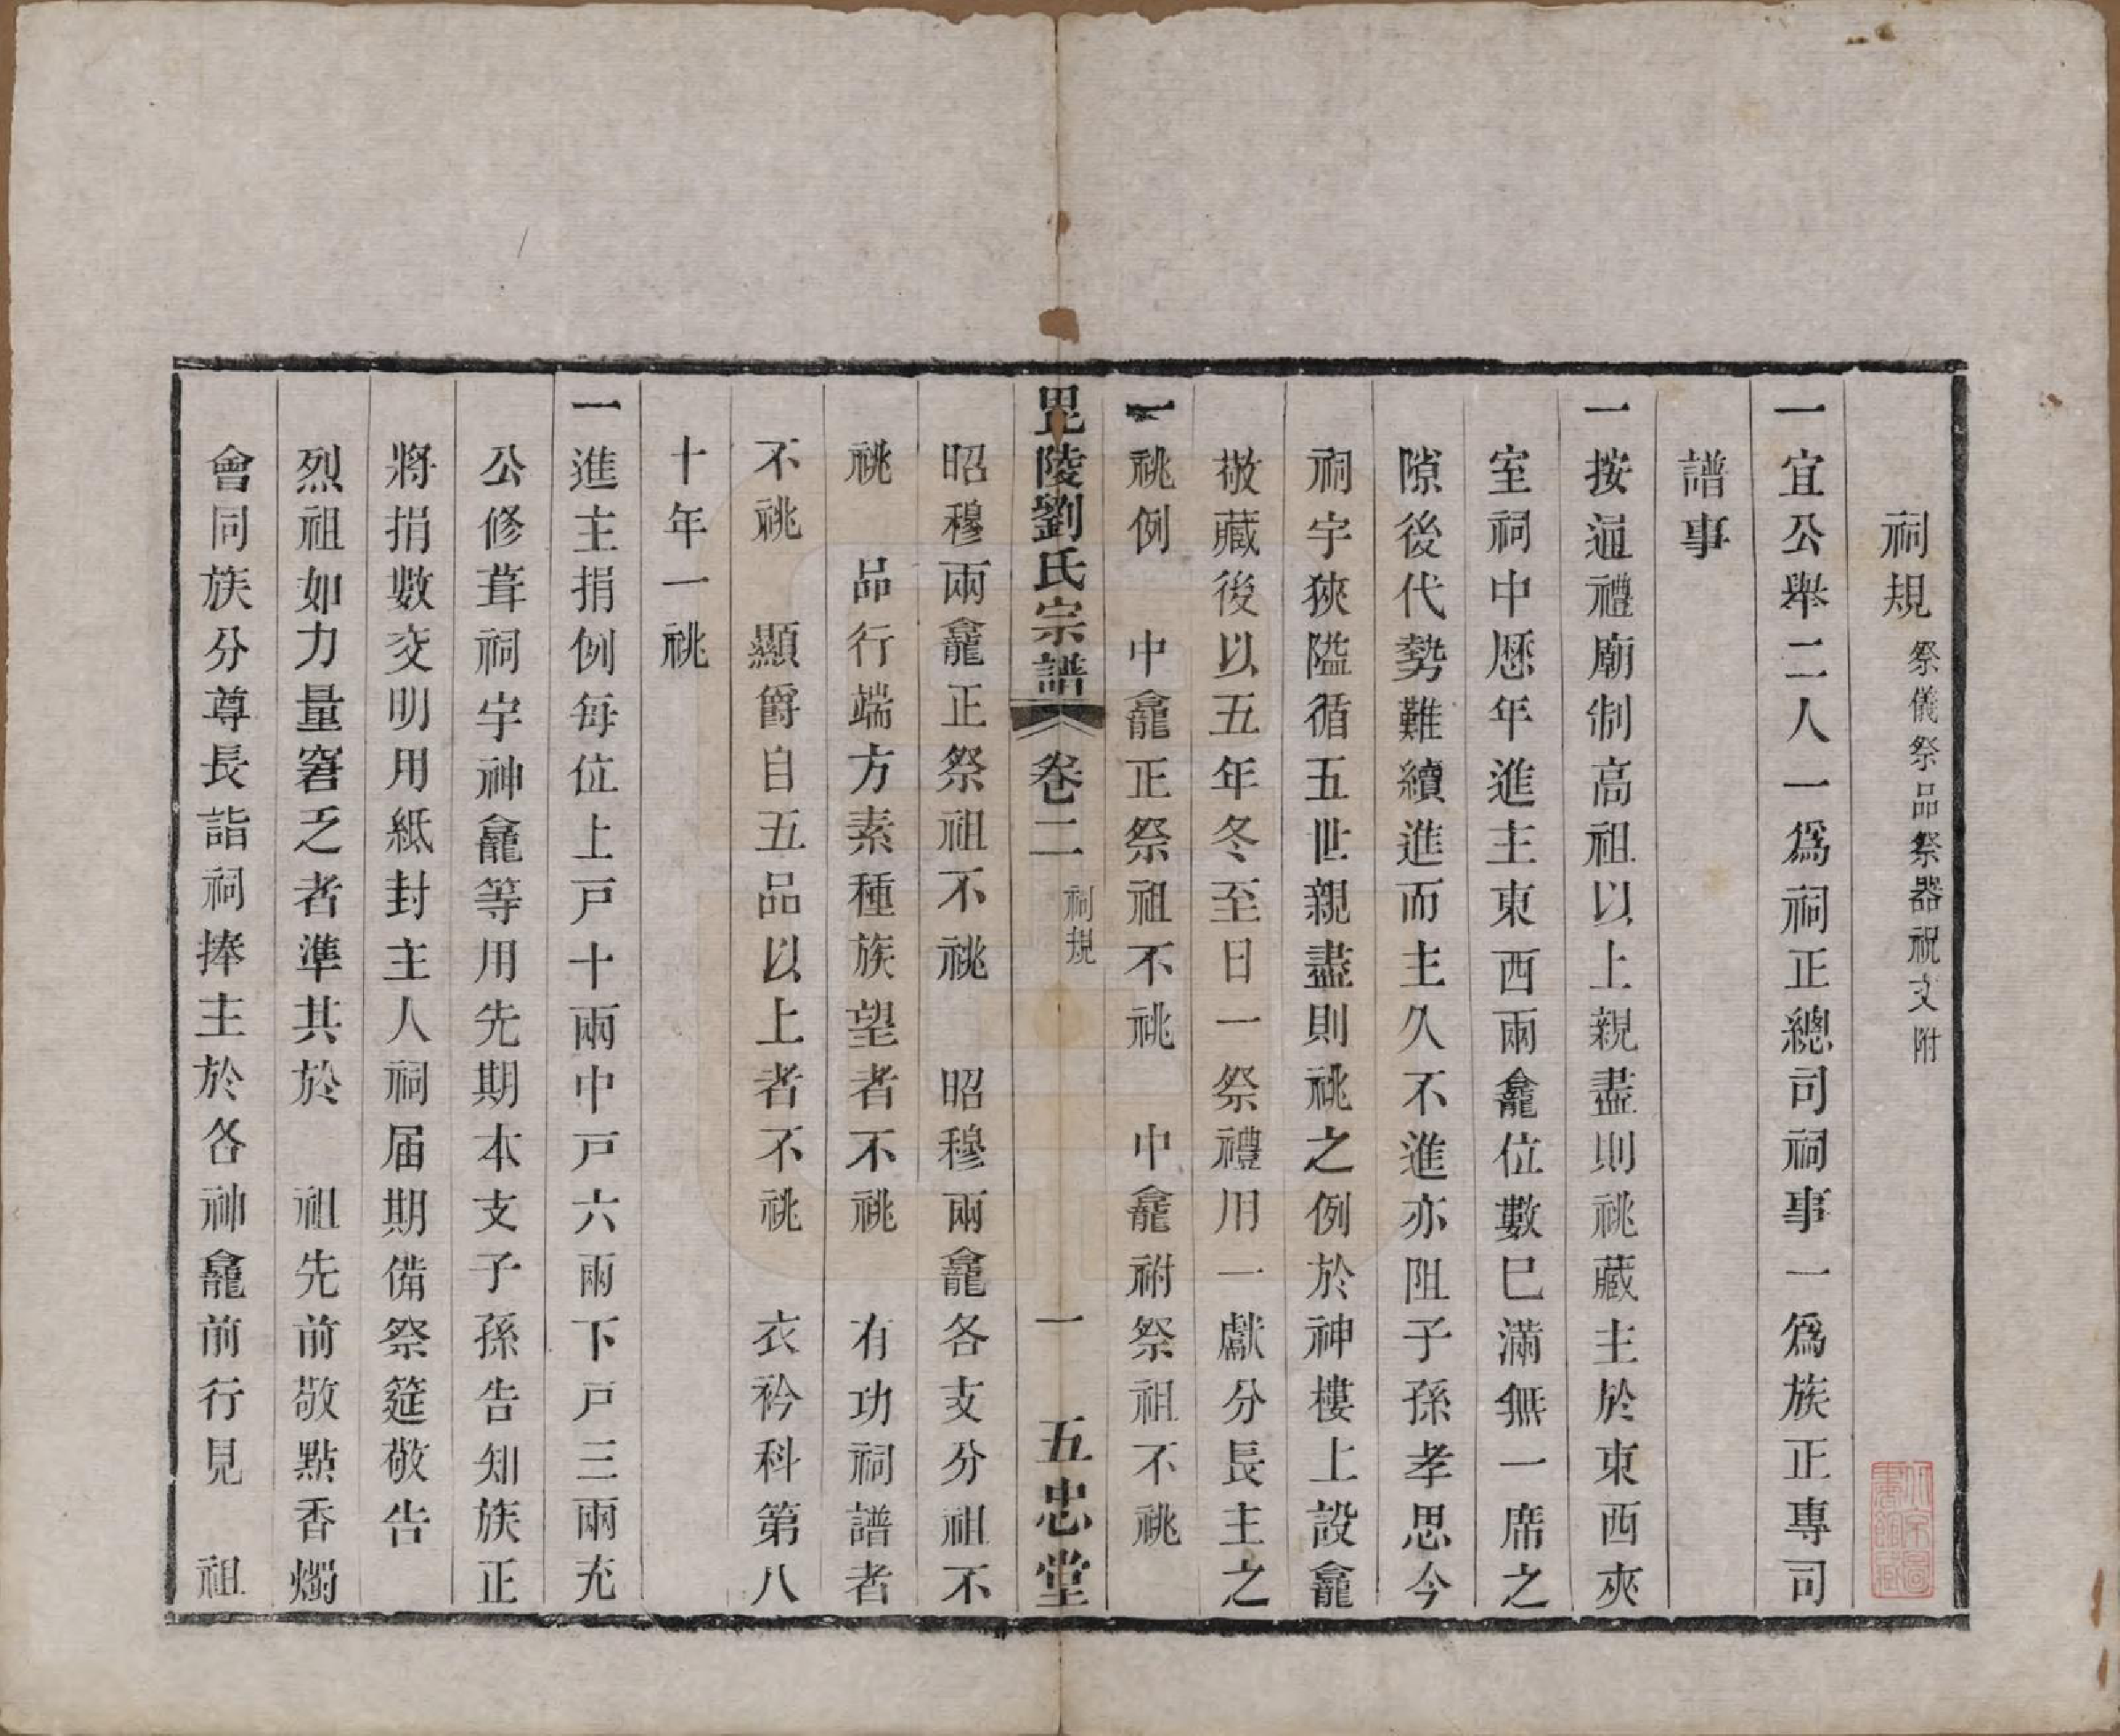 祠規祭儀祭品祭器祝文附
一宜公舉二人一爲祠正總司祠事一爲族正專司
譜事
一按通禮廟制高祖以上親盡則祧藏主於東西夾
室祠中歷年進主東西兩龕位數巳滿無一席之
隙後代勢難續進而主久不進亦阻子孫孝思今
祠宇狹隘循五世親盡則祧之例於神樓上設龕
敬藏後以五年冬至日一祭禮用一獻分長主之
一祧例　中龕正祭祖不祧　中龕祔祭祖不祧
毘陵劉氏宗譜　卷二　祠規　一　五忠堂
昭穆兩龕正祭祖不祧　昭穆兩龕各支分祖不
祧　品行端方素種族望者不祧　有功祠譜者
不祧　顯爵自五品以上者不祧　衣衿科第八
十年一祧
一進主捐例每位上戸十兩中戸六兩下戸三兩充
公修葺祠宇神龕等用先期本支子孫告知族正
將捐數交明用紙封主人祠届期備祭筵敬告
烈祖如力量窘乏者準其於　祖先前敬點香燭
會同族分尊長詣祠捧主於各神龕前行見　祖